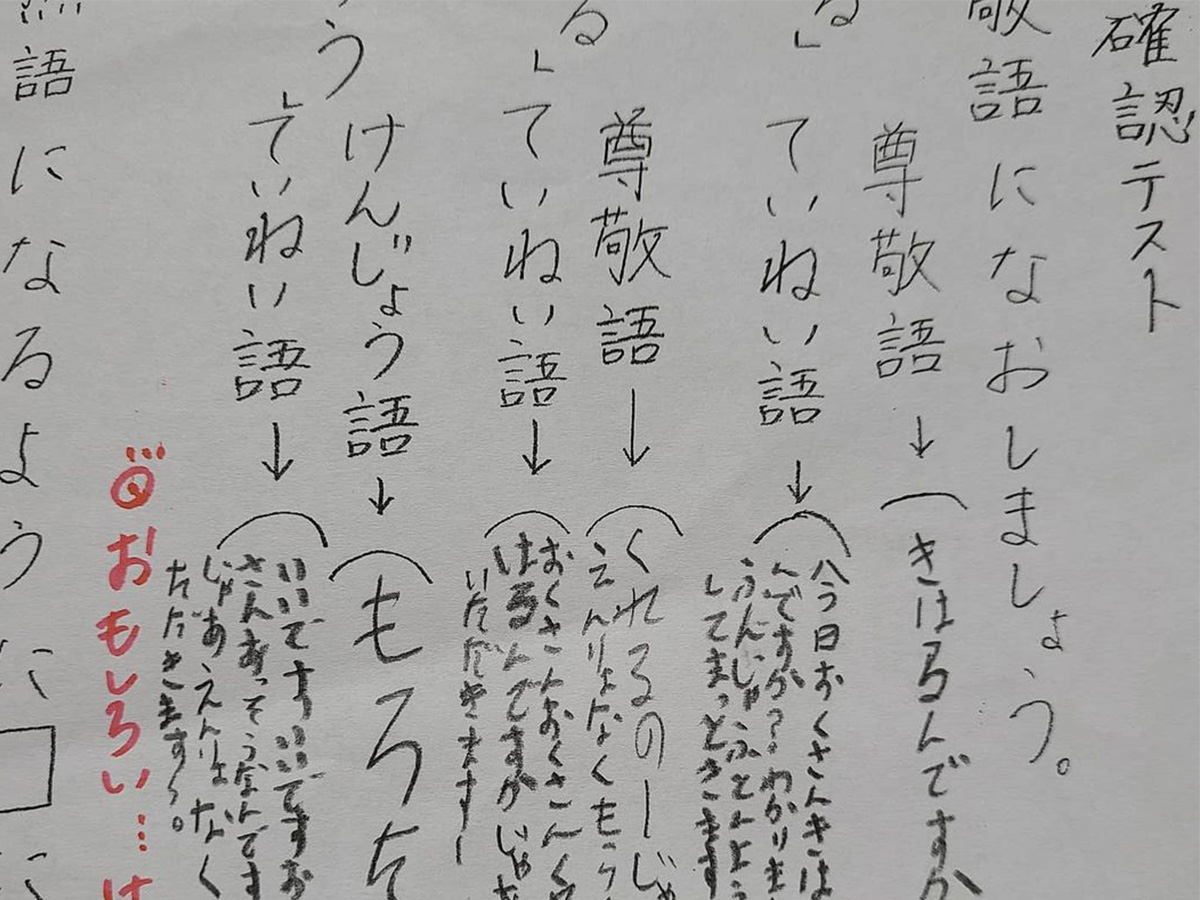 確認テスト
敬語になおしましょう。
尊敬語→(きはるんですか
る」ていねい語→(今日おくさんきは
んですか?わかりま
してまっときます
尊敬語→(くれるのーじゃ
えんりょなくもら
る」ていねい語→(おくさんおくさんく
はるんですかじゃあ
いただきますー
う けんじょう語→(もろた
」ていねい語→(いいですいいですお
さんあってそうなんです
じゃあえんりょなく
ただきます〜。
おもしろい…け
語になるように□に